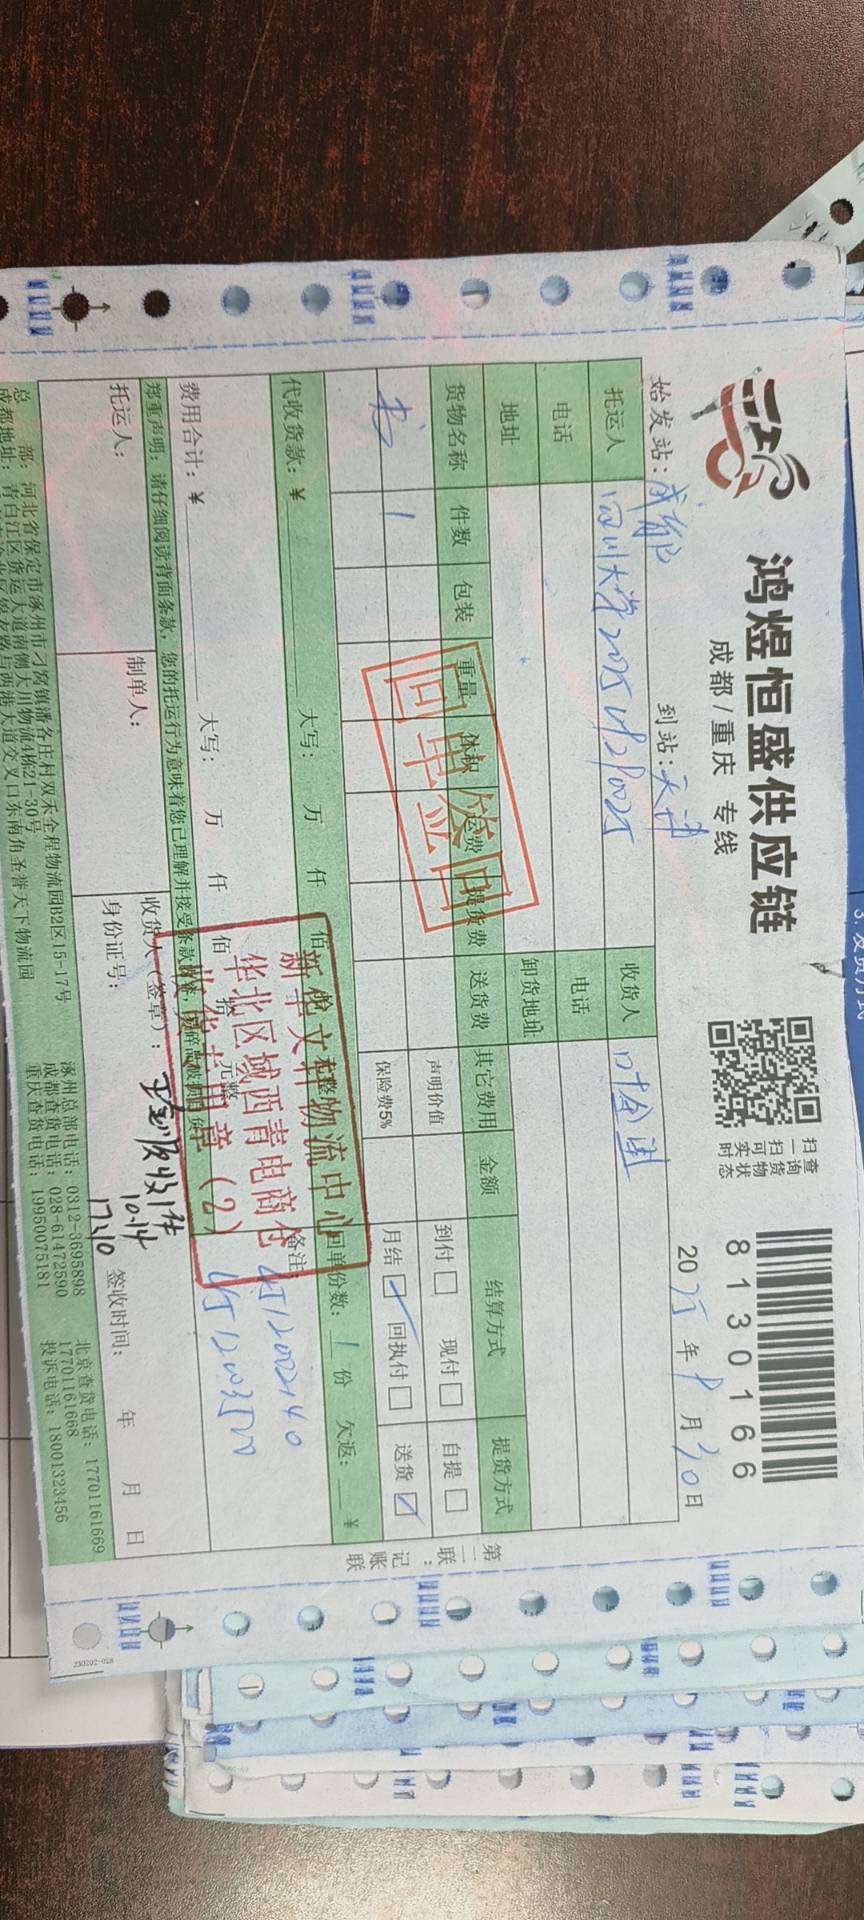 鸿煜恒盛供应链
成都/重庆 专线
扫一扫可实时
查询货物状态
8130166
始发站：成都
到站：天津
2025年8月30日
托运人
四川大学
收货人
叶金国
电话
电话
地址
卸货地址
货物名称 件数 包装 重量 体积 运费 提货费 送货费 其它费用 金额 结算方式 提货方式
书 1
声明价值
到付 现付 自提
保险费5%
月结 ✓ 回执付 送货 ✓
回单签回
代收货款：¥
大写： 万 仟 佰
回单份数：1份 欠返： ¥
费用合计：¥
大写： 万 仟 佰 元整
备注：
新华文轩物流中心
华北区域西青电商仓
收货专用章（2）
郑重声明：请仔细阅读背面条款，您的托运行为意味着您已理解并接受条款
托运人：
制单人：
收货人（签章）：
身份证号：
1件
10.14
17:10
签收时间： 年 月 日
总部：河北省保定市涿州市刁窝镇潘各庄村双禾金程物流园B2区15-17号
成都地址：青白江区货运大道南侧天川物流4栋21-30号
涿州总部电话：0312-3695898
成都查货电话：028-61472590
重庆查货电话：19950075181
北京查货电话：17701161669
17701161668
投诉电话：18001323456
第二联：记账联
230202-028